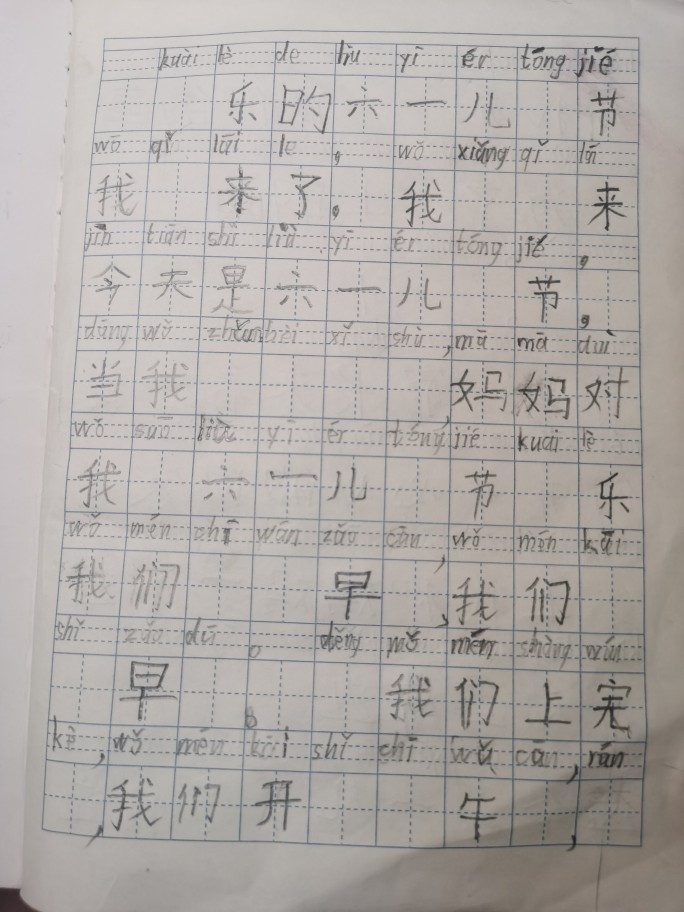 kuài lè de liù yī ér tóng jié
乐的六一儿节
wǒ qǐ lái le 。 wǒ xiǎng qǐ lái
我来了。我来
jīn tiān shì liù yī ér tóng jié ,
今天是六一儿节,
dāng wǒ zhǔn bèi xǐ shù , mā mā duì
当我妈妈对
wǒ suō liù yī ér tóng jié kuài lè
我六一儿节乐
wǒ mén chī wán zǎo cān , wǒ mén kāi
我们早,我们
shǐ zǎo dú 。 děng wǒ mén shàng wán
早。我们上完
kè , wǒ mén kāi shǐ chī wǔ cān , rán
,我们开午,